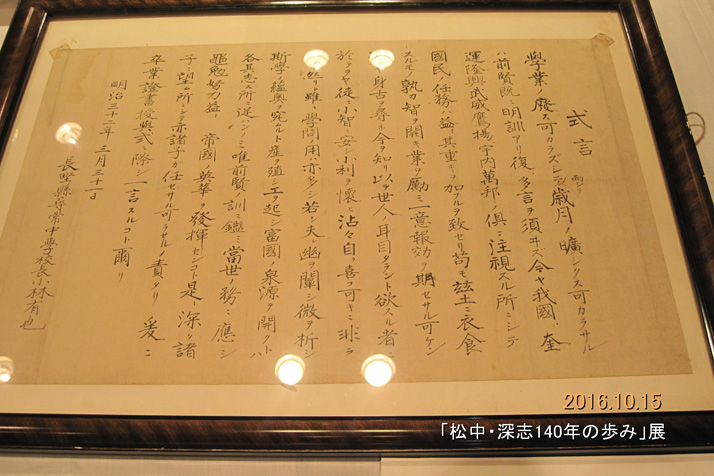 式言
學業ノ廢ス可カラズシテ歳月ノ曠シクス可カラサル
ハ前賢既ニ明訓アリ復多言ヲ須ヰズ今ヤ我國ノ奎
運隆興武威鷹揚宇内萬邦ノ倶ニ注視スル所ニシテ
國民ノ任務ハ益其重キヲ加フルヲ致セリ苟モ玆土ニ衣食
スルモノ孰カ智ヲ開キ業ヲ勵ミ一意報効ヲ期セサル可ケン
身古ヲ尋ネ今ヲ知リ以テ世人ノ耳目タラント欲スル者ニ
於テヲヤ徒ニ小智ニ安シ小利ヲ懐ヒ沾々自ラ喜フ可キニ非ラ
然リト雖學問ノ用ハ亦多シ若シ夫レ幽ヲ闡シ微ヲ析シ
斯學ノ蘊奥ヲ究ルト産ヲ殖シ工ヲ起シ富國ノ泉源ヲ開クトハ
各其志ス所ニ從ハンノミ唯前賢ノ訓ニ鑑ミ當世ノ務ニ應シ
黽勉努力益帝國ノ英華ヲ發揮センコト是レ深ク諸
子ニ望ム所ニシテ亦諸子カ任セサル可ラサルノ責タリ爰ニ
卒業證書授與式ニ際シ一言スルコト爾リ
明治三十二年三月三十一日
長野縣尋常中學校長小林有也
2016.10.15
「松中・深志140年の歩み」展